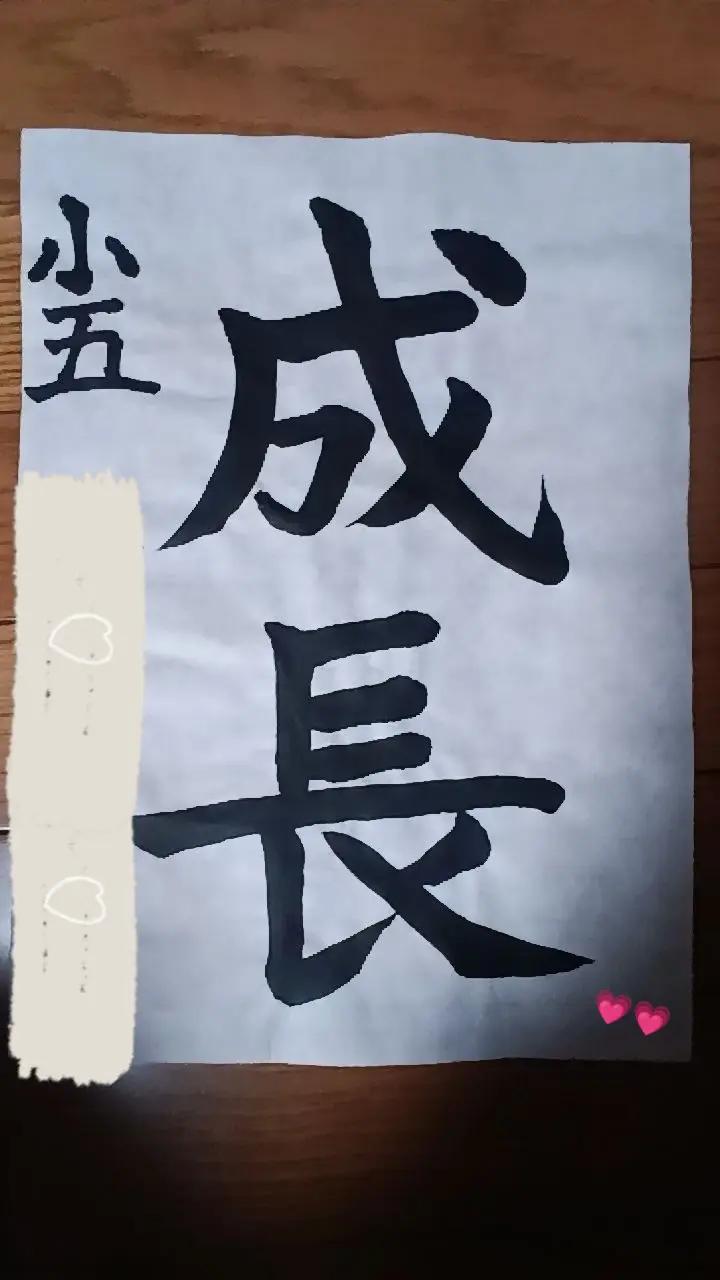 成長
小五